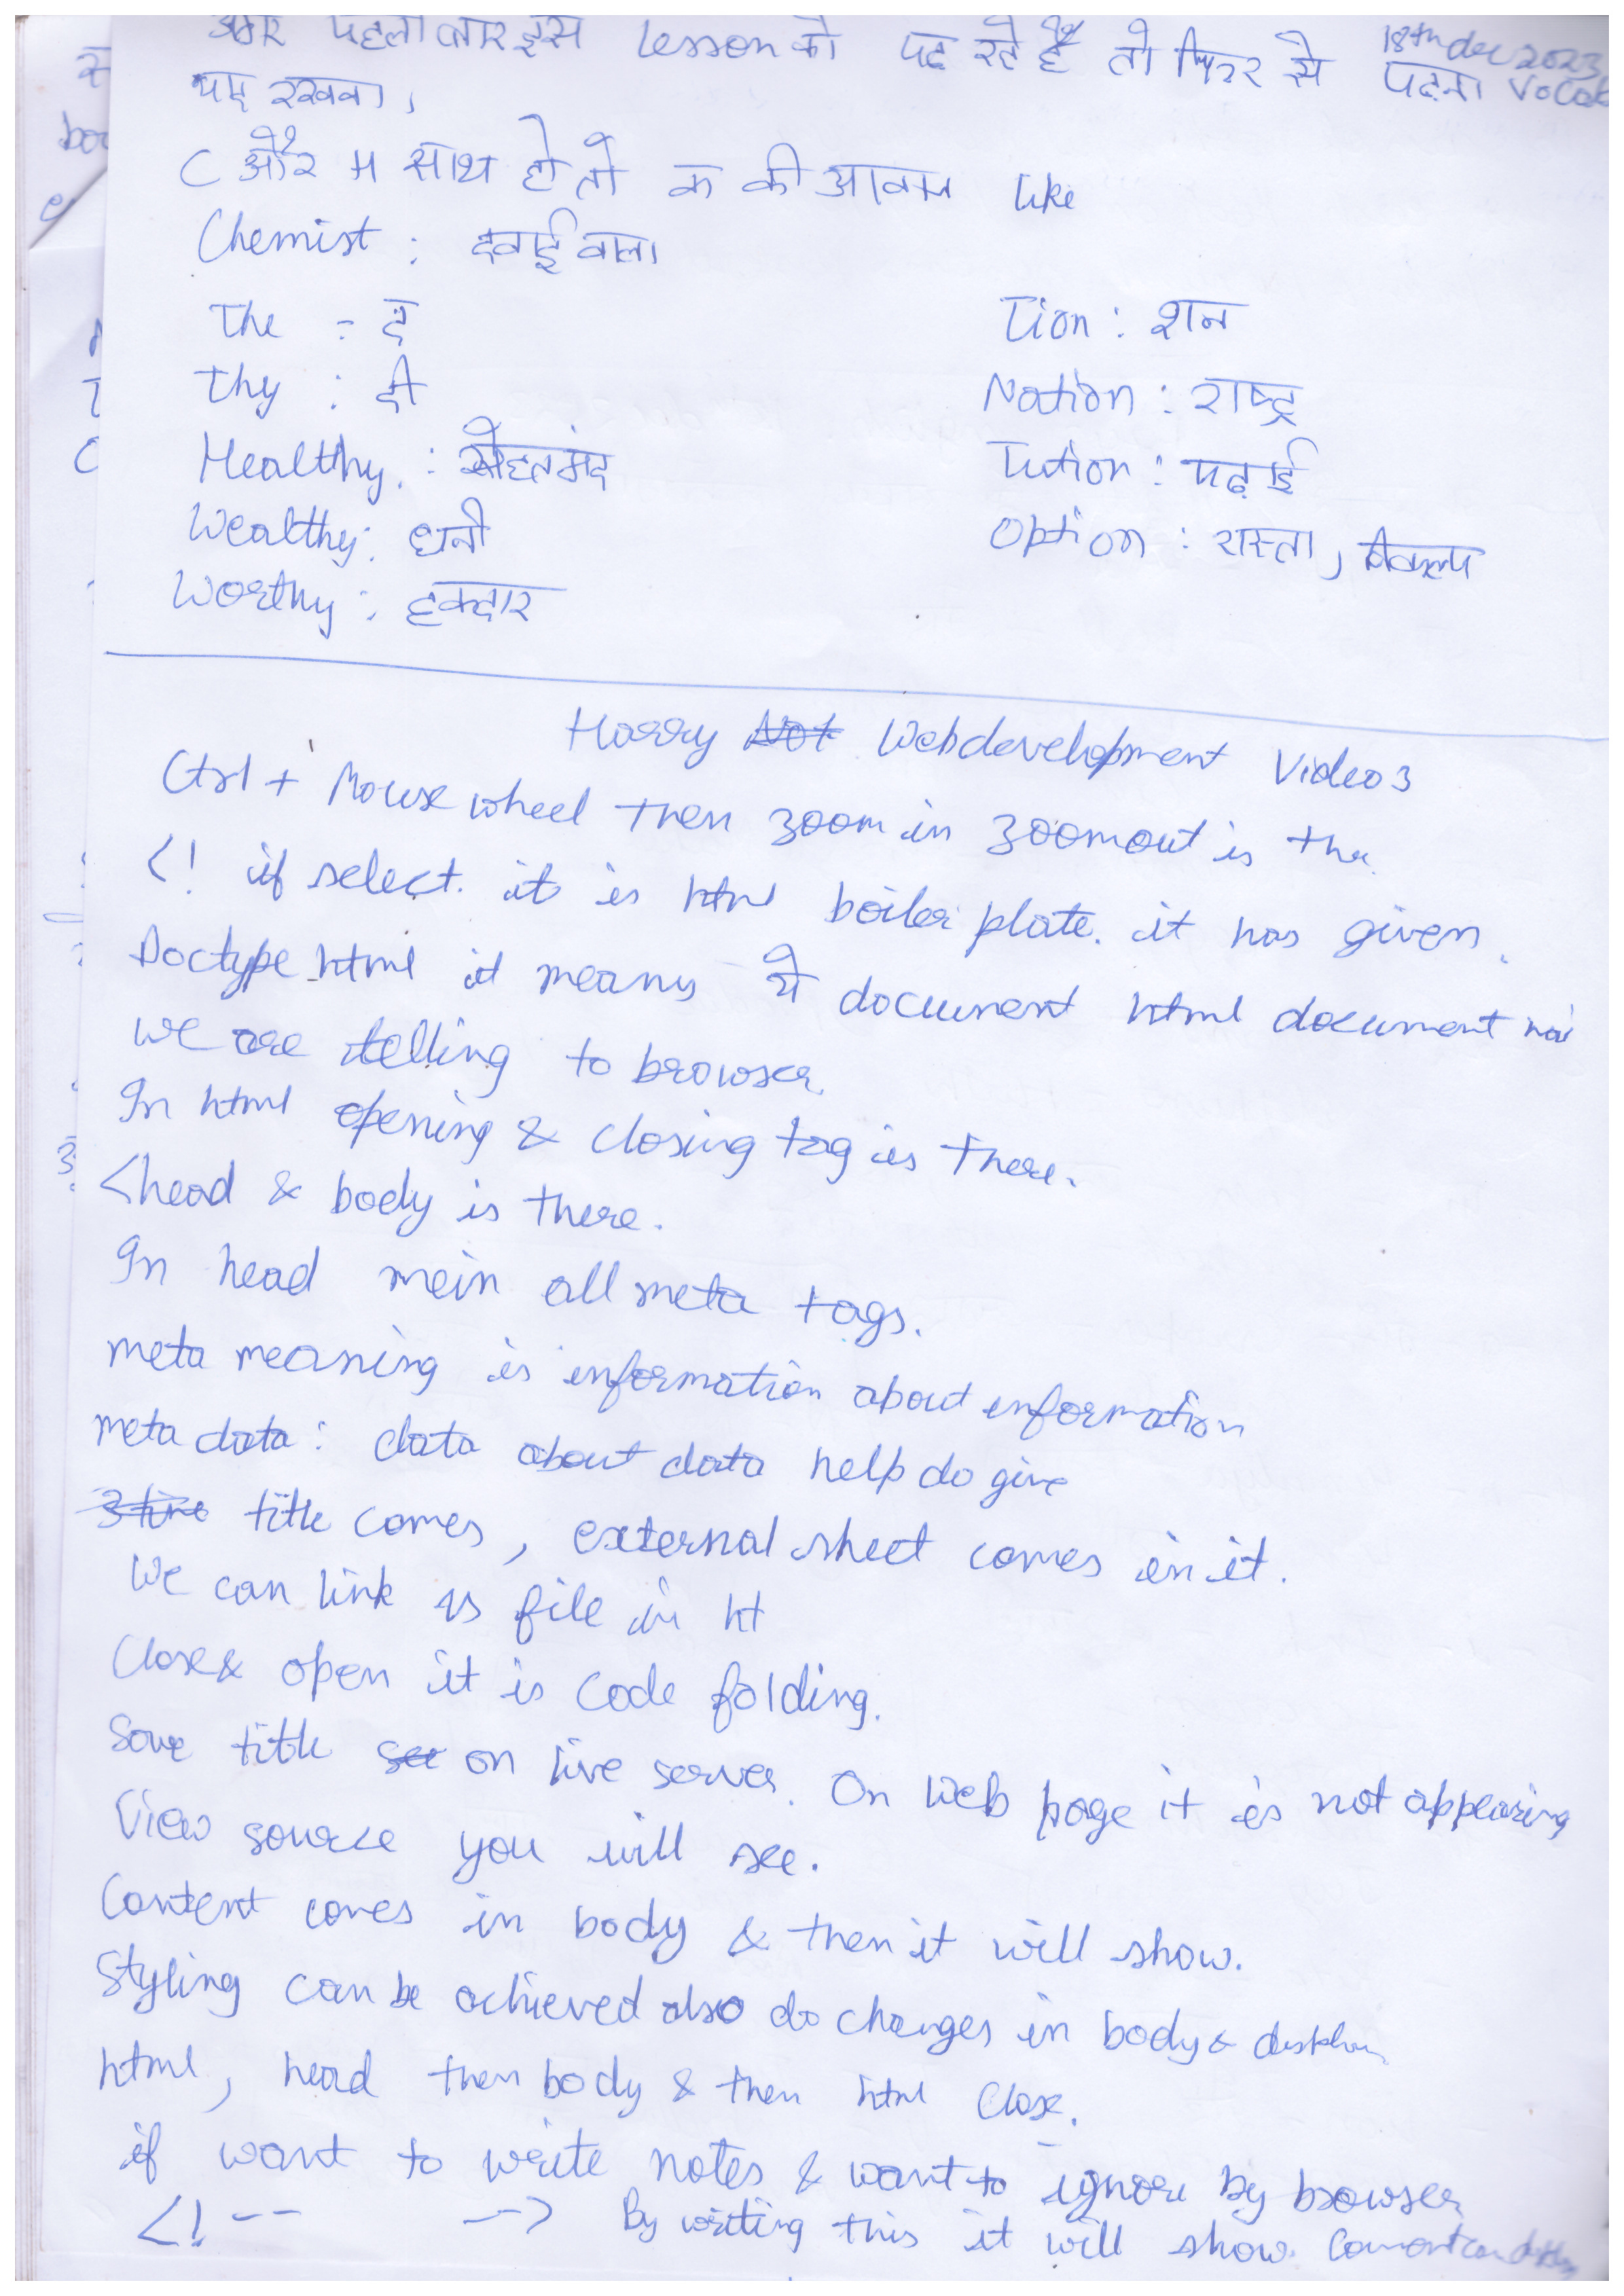 18th dec 2023
Vocab
अगर पहली बार इस lesson को पढ़ रहे हैं तो फिर से पढ़ना
याद रखना,
C और H साथ हो तो क की आवाज like
Chemist : दवाई वाला
The : द
Thy : दी
Healthy : सेहतमंद
Wealthy : धनी
Worthy : हकदार
Tion : शन
Nation : राष्ट्र
Tution : पढ़ाई
Option : रास्ता, विकल्प
Harry Not Webdevelopment Video 3
Ctrl + Mouse wheel then zoom in zoomout is the
<! if select. it is html boiler plate. it has given.
Doctype html it means ये document html document hai
we are telling to browser.
In html opening & closing tag is there.
<head & body is there.
In head mein all meta tags.
meta meaning is information about information
meta data : data about data help do give
title comes, external sheet comes in it.
We can link js file in ht
Close & open it is code folding.
Save title see on live server. On Web page it is not appearing
View source you will see.
Content comes in body & then it will show.
Styling can be achieved also do changes in body &
html, head then body & then html close.
if want to write notes & want to ignore by browser
<! -- --> By writing this it will show.